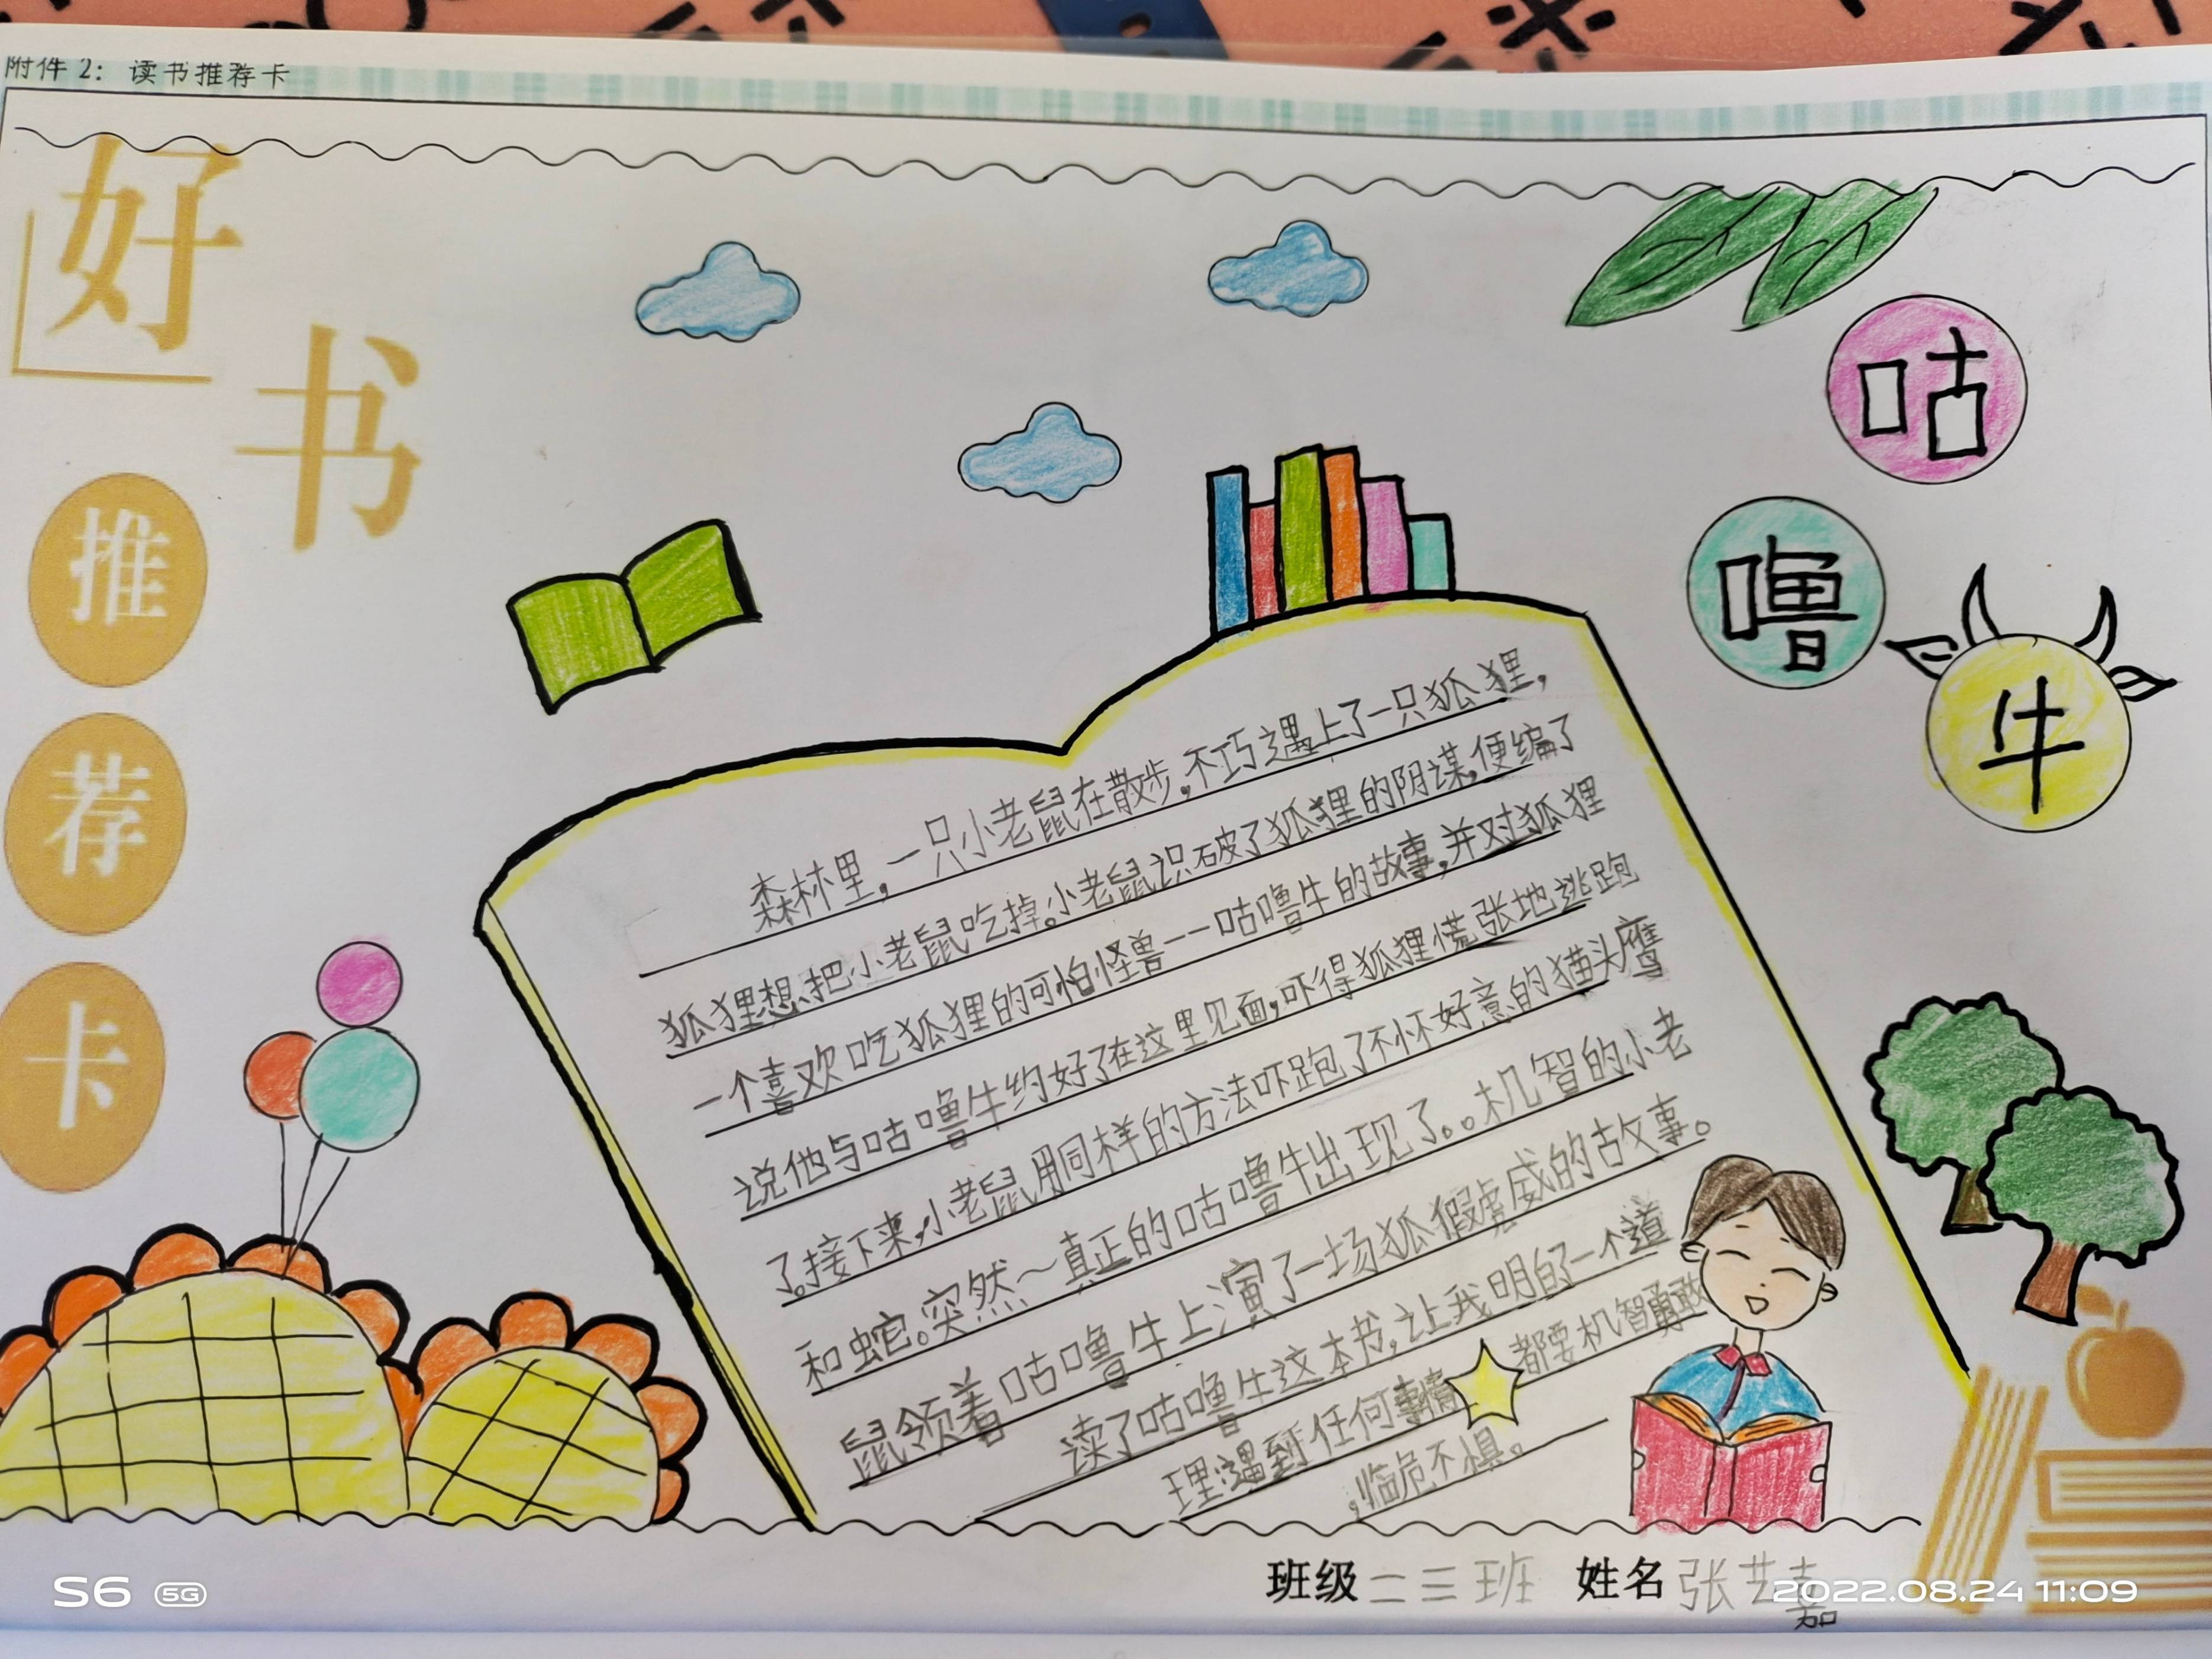 附件2：读书推荐卡
好
书
推
荐
卡
咕
噜
牛
森林里，一只小老鼠在散步，不巧遇上了一只狐狸，
狐狸想把小老鼠吃掉。小老鼠识破了狐狸的阴谋，便编了
一个喜欢吃狐狸的可怕怪兽——咕噜牛的故事，并对狐狸
说他与咕噜牛约好了在这里见面，吓得狐狸慌张地逃跑
了。接下来，小老鼠用同样的方法吓跑了不怀好意的猫头鹰
和蛇。突然～真正的咕噜牛出现了。。机智的小老
鼠领着咕噜牛上演了一场狐假虎威的故事。
读了咕噜牛这本书，让我明白了一个道
理：遇到任何事情 都要机智勇敢
，临危不惧。
班级 二三班 姓名 张艺嘉
S6 5G
2022.08.24 11:09